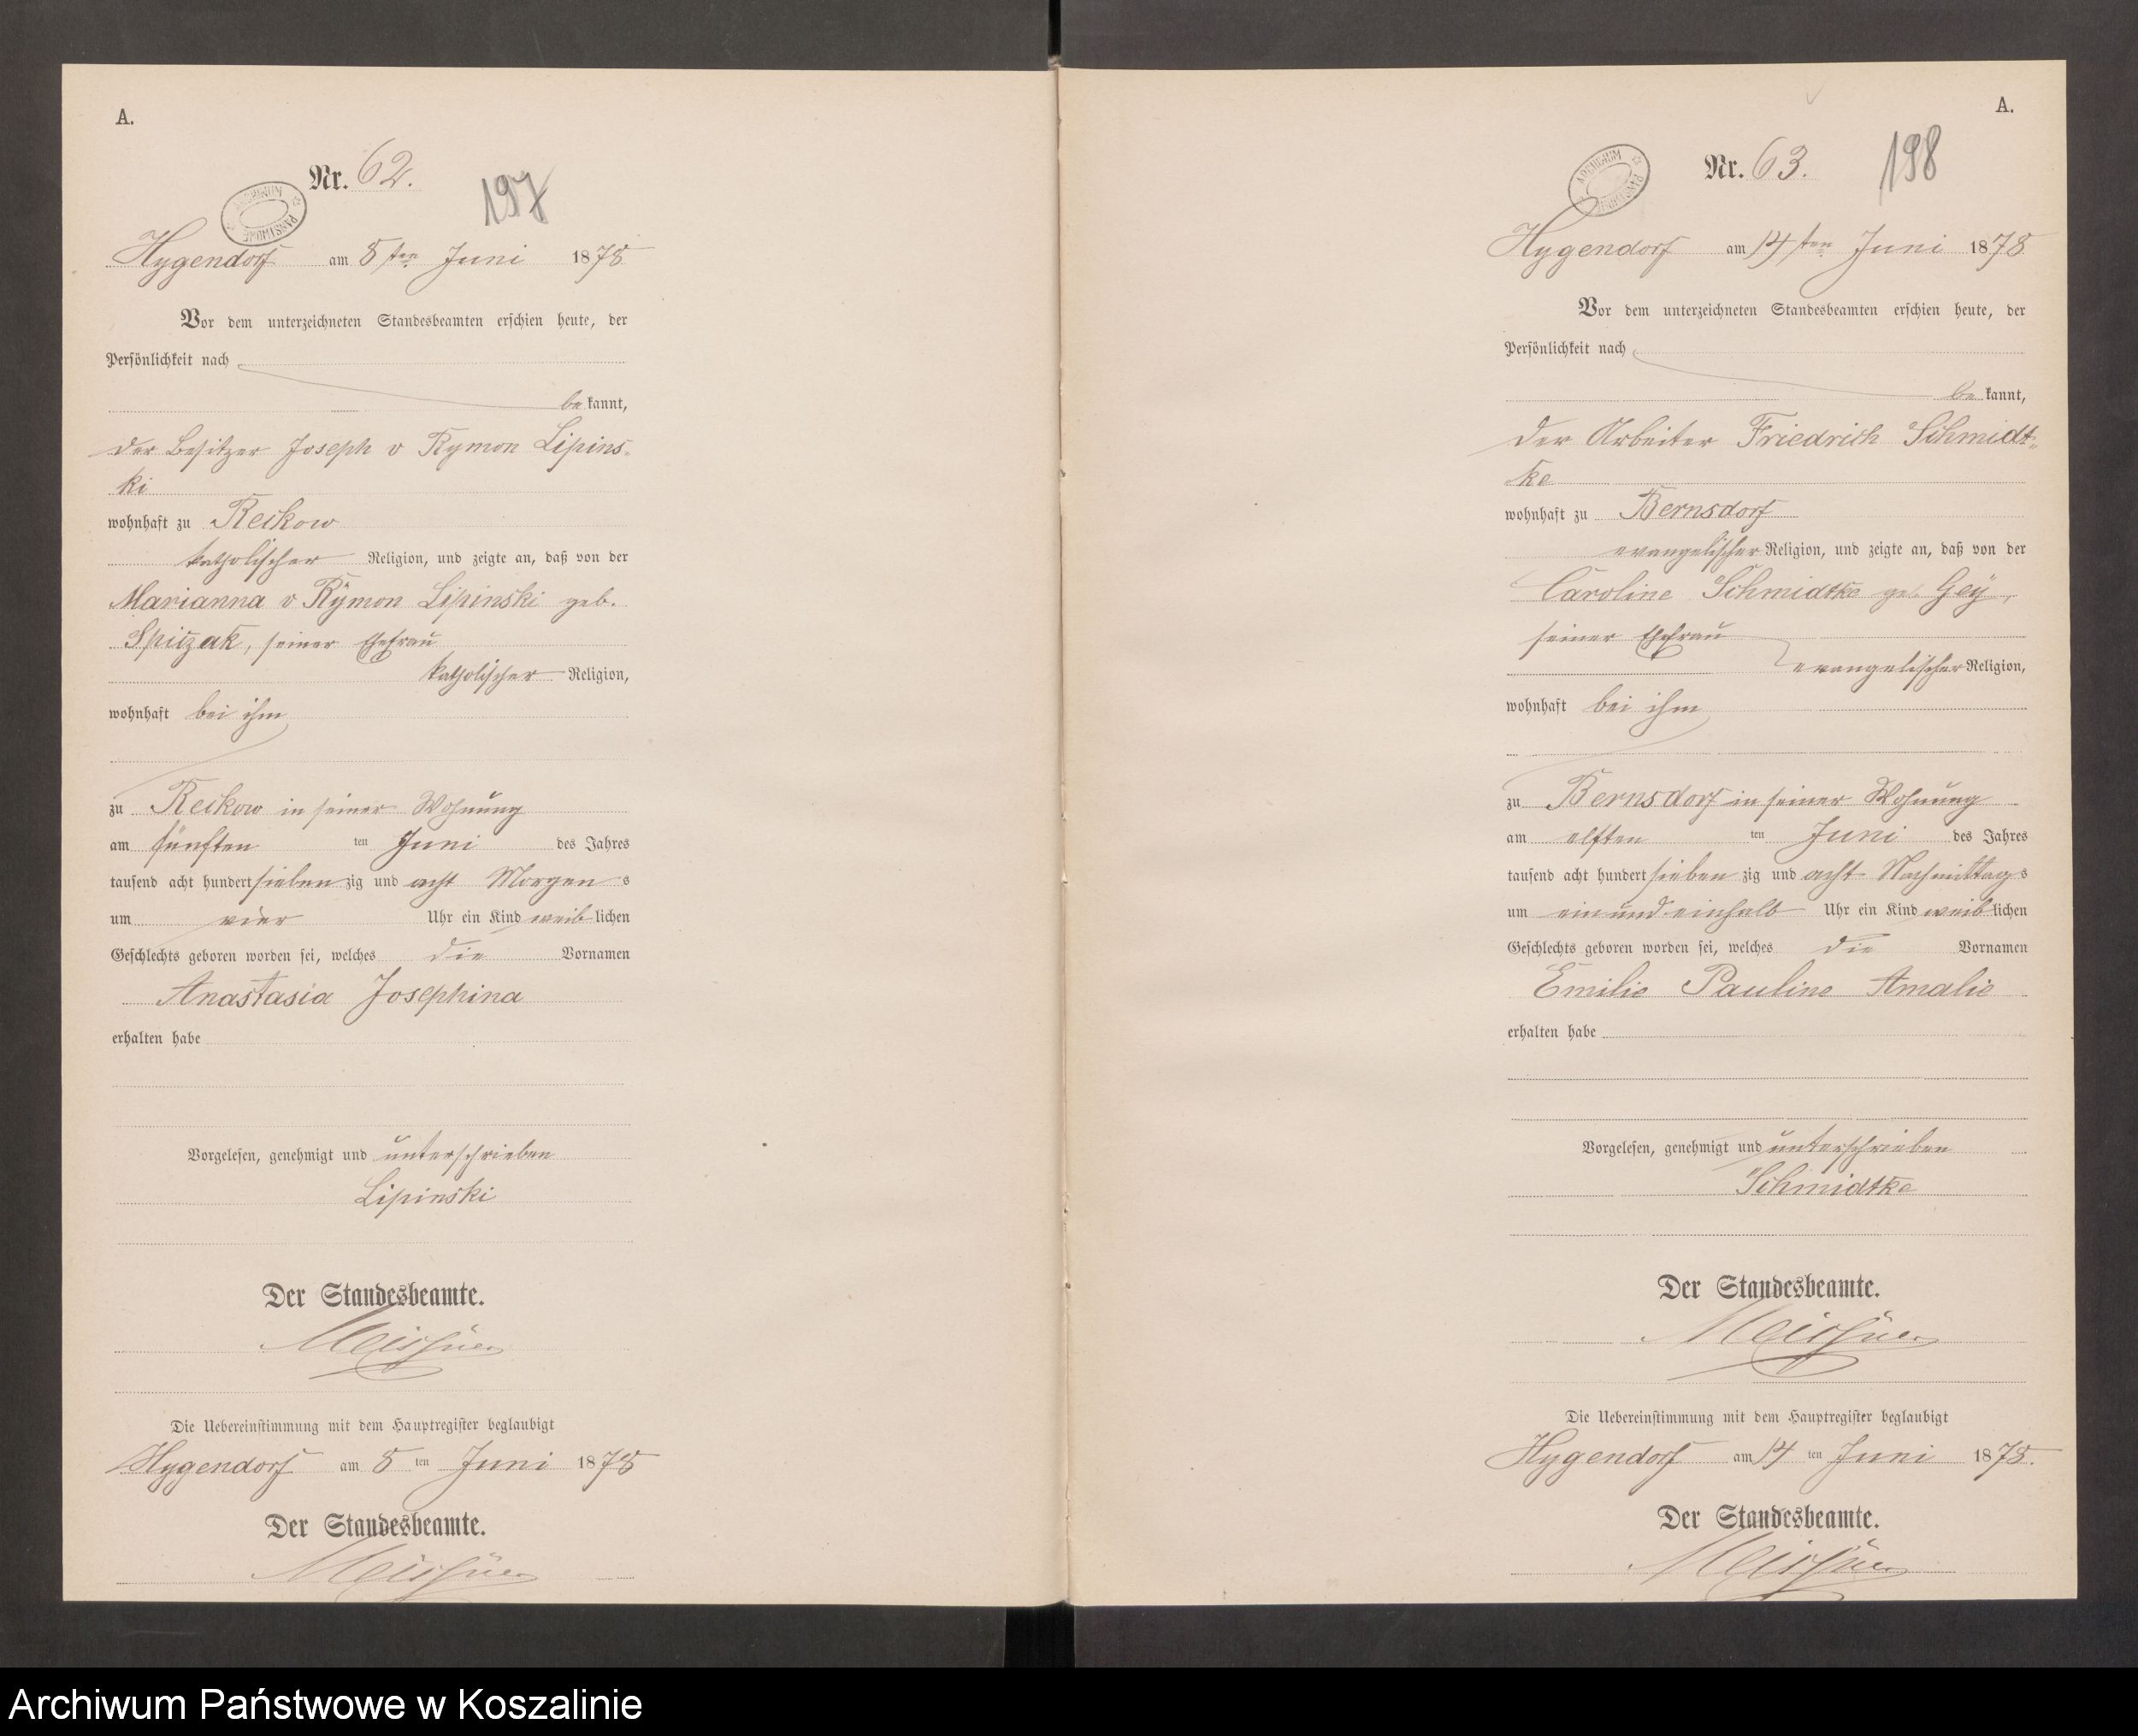 A.
Nr. 62.
197
ARCHIWUM PAŃSTWOWE
Hygendorf am 5 ten Juni 1878
Vor dem unterzeichneten Standesbeamten erschien heute, der
Persönlichkeit nach
be kannt,
der Besitzer Joseph v Rymon Lipins-
ki
wohnhaft zu Reckow
katholischer Religion, und zeigte an, daß von der
Marianna v Rymon Lipinski geb.
Spiczak, seiner Ehefrau
katholischer Religion,
wohnhaft bei ihm
zu Reckow in seiner Wohnung
am fünften ten Juni des Jahres
tausend acht hundert sieben zig und acht Morgen s
um vier Uhr ein Kind weib lichen
Geschlechts geboren worden sei, welches die Vornamen
Anastasia Josephina
erhalten habe
Vorgelesen, genehmigt und unterschrieben
Lipinski
Der Standesbeamte.
Die Uebereinstimmung mit dem Hauptregister beglaubigt
Hygendorf am 5 ten Juni 1878
Der Standesbeamte.
A.
Nr. 63.
198
ARCHIWUM PAŃSTWOWE
Hygendorf am 14 ten Juni 1878
Vor dem unterzeichneten Standesbeamten erschien heute, der
Persönlichkeit nach
be kannt,
der Arbeiter Friedrich Schmidt-
ke
wohnhaft zu Bernsdorf
evangelischer Religion, und zeigte an, daß von der
Caroline Schmidtke geb. Gey,
seiner Ehefrau
evangelischer Religion,
wohnhaft bei ihm
zu Bernsdorf in seiner Wohnung
am elften ten Juni des Jahres
tausend acht hundert sieben zig und acht Nachmittag s
um ein und einhalb Uhr ein Kind weib lichen
Geschlechts geboren worden sei, welches die Vornamen
Emilie Pauline Amalie
erhalten habe
Vorgelesen, genehmigt und unterschrieben
Schmidtke
Der Standesbeamte.
Die Uebereinstimmung mit dem Hauptregister beglaubigt
Hygendorf am 14 ten Juni 1878.
Der Standesbeamte.
Archiwum Państwowe w Koszalinie